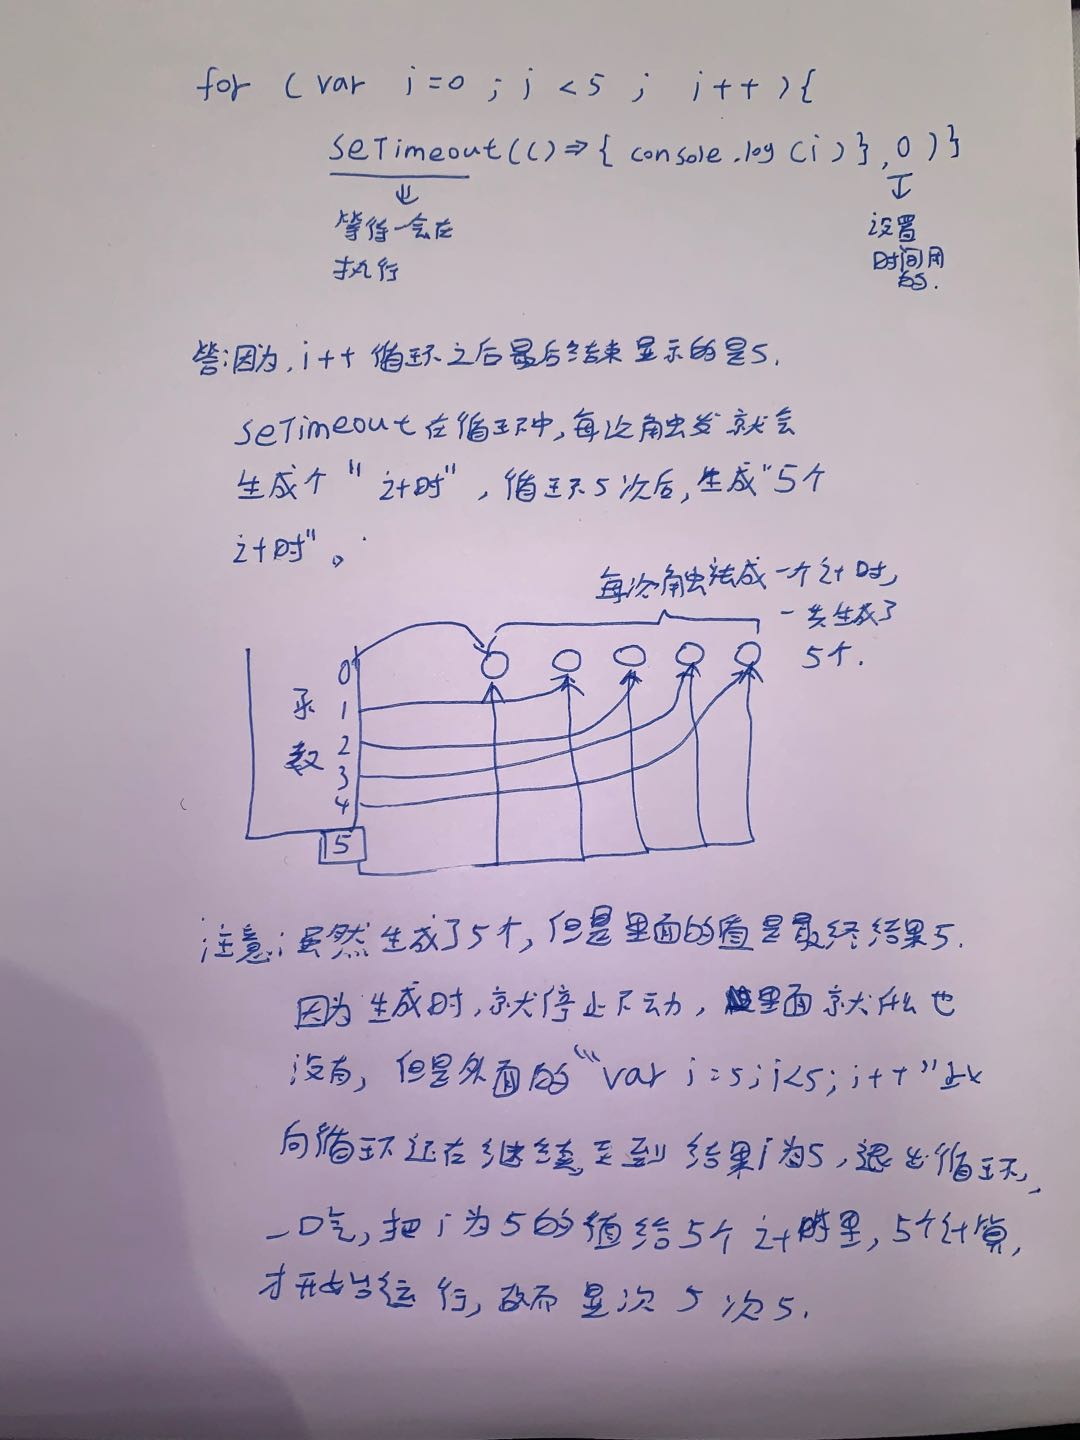 for (var i=0 ; i <5 ; i++){
seTimeout(()=>{ console.log(i)},0)}
等待一会在
执行
设置
时间用
的.
答:因为,i++循环之后最后结束显示的是5.
seTimeout在循环中,每次触发就会
生成个"计时",循环5次后,生成"5个
计时"。
每次触法成一个计时,
一共生成了
5个.
0
1
2
3
4
5
数
注意:虽然生成了5个,但是里面的值是最终结果5.
因为生成时,就停止不动,里面就什么也
没有,但是外面的"var i=5;i<5;i++"
向循环还在继续,至到结果i为5,退出循环,
一口气,把i为5的值给5个计时里,5个计算,
才开始运行,故而显次5次5.